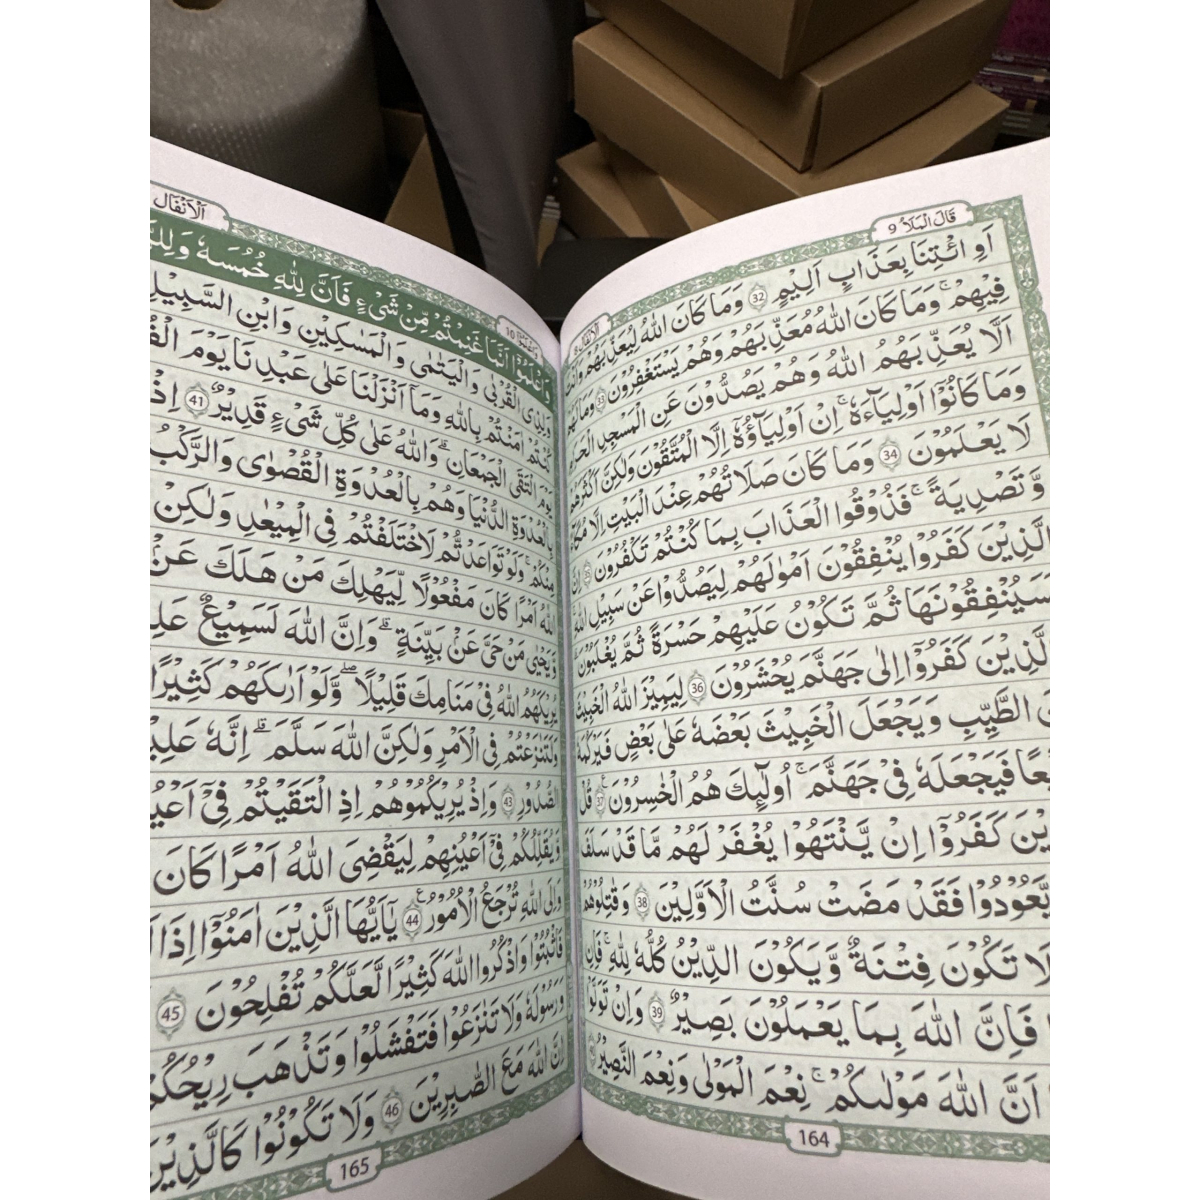 قَالَ الْمَلَاُ 9
اَلْاَنْفَال 8
اَوِ ائْتِنَا بِعَذَابٍ اَلِيْمٍ 32 وَمَا كَانَ اللّٰهُ لِيُعَذِّبَهُمْ وَاَنْتَ
فِيْهِمْ ۚ وَمَا كَانَ اللّٰهُ مُعَذِّبَهُمْ وَهُمْ يَسْتَغْفِرُوْنَ 33 وَمَا لَهُمْ
اَلَّا يُعَذِّبَهُمُ اللّٰهُ وَهُمْ يَصُدُّوْنَ عَنِ الْمَسْجِدِ الْحَرَامِ
وَمَا كَانُوْٓا اَوْلِيَآءَهٗ ۚ اِنْ اَوْلِيَآؤُهٗٓ اِلَّا الْمُتَّقُوْنَ وَلٰكِنَّ اَكْثَرَهُمْ
لَا يَعْلَمُوْنَ 34 وَمَا كَانَ صَلَاتُهُمْ عِنْدَ الْبَيْتِ اِلَّا مُكَآءً
وَّتَصْدِيَةً ۚ فَذُوْقُوا الْعَذَابَ بِمَا كُنْتُمْ تَكْفُرُوْنَ 35 اِنَّ
الَّذِيْنَ كَفَرُوْا يُنْفِقُوْنَ اَمْوٰلَهُمْ لِيَصُدُّوْا عَنْ سَبِيْلِ اللّٰهِ
فَسَيُنْفِقُوْنَهَا ثُمَّ تَكُوْنُ عَلَيْهِمْ حَسْرَةً ثُمَّ يُغْلَبُوْنَ
الَّذِيْنَ كَفَرُوْٓا اِلٰى جَهَنَّمَ يُحْشَرُوْنَ 36 لِيَمِيْزَ اللّٰهُ الْخَبِيْثَ
الطَّيِّبِ وَيَجْعَلَ الْخَبِيْثَ بَعْضَهٗ عَلٰى بَعْضٍ فَيَرْكُمَهٗ
فَيَجْعَلَهٗ فِيْ جَهَنَّمَ ۚ اُولٰٓئِكَ هُمُ الْخٰسِرُوْنَ 37 قُلْ
كَفَرُوْٓا اِنْ يَّنْتَهُوْا يُغْفَرْ لَهُمْ مَّا قَدْ سَلَفَ
يَّعُوْدُوْا فَقَدْ مَضَتْ سُنَّتُ الْاَوَّلِيْنَ 38 وَقَاتِلُوْهُمْ
لَا تَكُوْنَ فِتْنَةٌ وَّيَكُوْنَ الدِّيْنُ كُلُّهٗ لِلّٰهِ ۚ فَاِنِ
فَاِنَّ اللّٰهَ بِمَا يَعْمَلُوْنَ بَصِيْرٌ 39 وَاِنْ تَوَلَّوْا
اَنَّ اللّٰهَ مَوْلٰىكُمْ ۚ نِعْمَ الْمَوْلٰى وَنِعْمَ النَّصِيْرُ 40
164
اَلْاَنْفَال
وَاعْلَمُوْٓا 10
وَاعْلَمُوْٓا اَنَّمَا غَنِمْتُمْ مِّنْ شَيْءٍ فَاَنَّ لِلّٰهِ خُمُسَهٗ
وَلِذِى الْقُرْبٰى وَالْيَتٰمٰى وَالْمَسٰكِيْنِ وَابْنِ السَّبِيْلِ
كُنْتُمْ اٰمَنْتُمْ بِاللّٰهِ وَمَآ اَنْزَلْنَا عَلٰى عَبْدِنَا يَوْمَ
يَوْمَ الْتَقَى الْجَمْعَانِ ۗ وَاللّٰهُ عَلٰى كُلِّ شَيْءٍ قَدِيْرٌ 41 اِذْ
بِالْعُدْوَةِ الدُّنْيَا وَهُمْ بِالْعُدْوَةِ الْقُصْوٰى وَالرَّكْبُ
مِنْكُمْ ۚ وَلَوْ تَوَاعَدْتُّمْ لَاخْتَلَفْتُمْ فِى الْمِيْعٰدِ وَلٰكِنْ
اللّٰهُ اَمْرًا كَانَ مَفْعُوْلًا لِّيَهْلِكَ مَنْ هَلَكَ عَنْ
وَّيَحْيٰى مَنْ حَيَّ عَنْ بَيِّنَةٍ ۗ وَاِنَّ اللّٰهَ لَسَمِيْعٌ
يُرِيْكَهُمُ اللّٰهُ فِيْ مَنَامِكَ قَلِيْلًا ۖ وَلَوْ اَرٰىكَهُمْ كَثِيْرًا
وَلَتَنٰزَعْتُمْ فِى الْاَمْرِ وَلٰكِنَّ اللّٰهَ سَلَّمَ ۗ اِنَّهٗ
الصُّدُوْرِ 43 وَاِذْ يُرِيْكُمُوْهُمْ اِذِ الْتَقَيْتُمْ فِيْٓ
وَّيُقَلِّلُكُمْ فِيْٓ اَعْيُنِهِمْ لِيَقْضِيَ اللّٰهُ اَمْرًا كَانَ
وَاِلَى اللّٰهِ تُرْجَعُ الْاُمُوْرُ 44 يٰٓاَيُّهَا الَّذِيْنَ اٰمَنُوْٓا اِذَا
فَاثْبُتُوْا وَاذْكُرُوا اللّٰهَ كَثِيْرًا لَّعَلَّكُمْ تُفْلِحُوْنَ 45
وَرَسُوْلَهٗ وَلَا تَنٰزَعُوْا فَتَفْشَلُوْا وَتَذْهَبَ رِيْحُكُمْ
اِنَّ اللّٰهَ مَعَ الصّٰبِرِيْنَ 46 وَلَا تَكُوْنُوْا كَالَّذِيْنَ
165